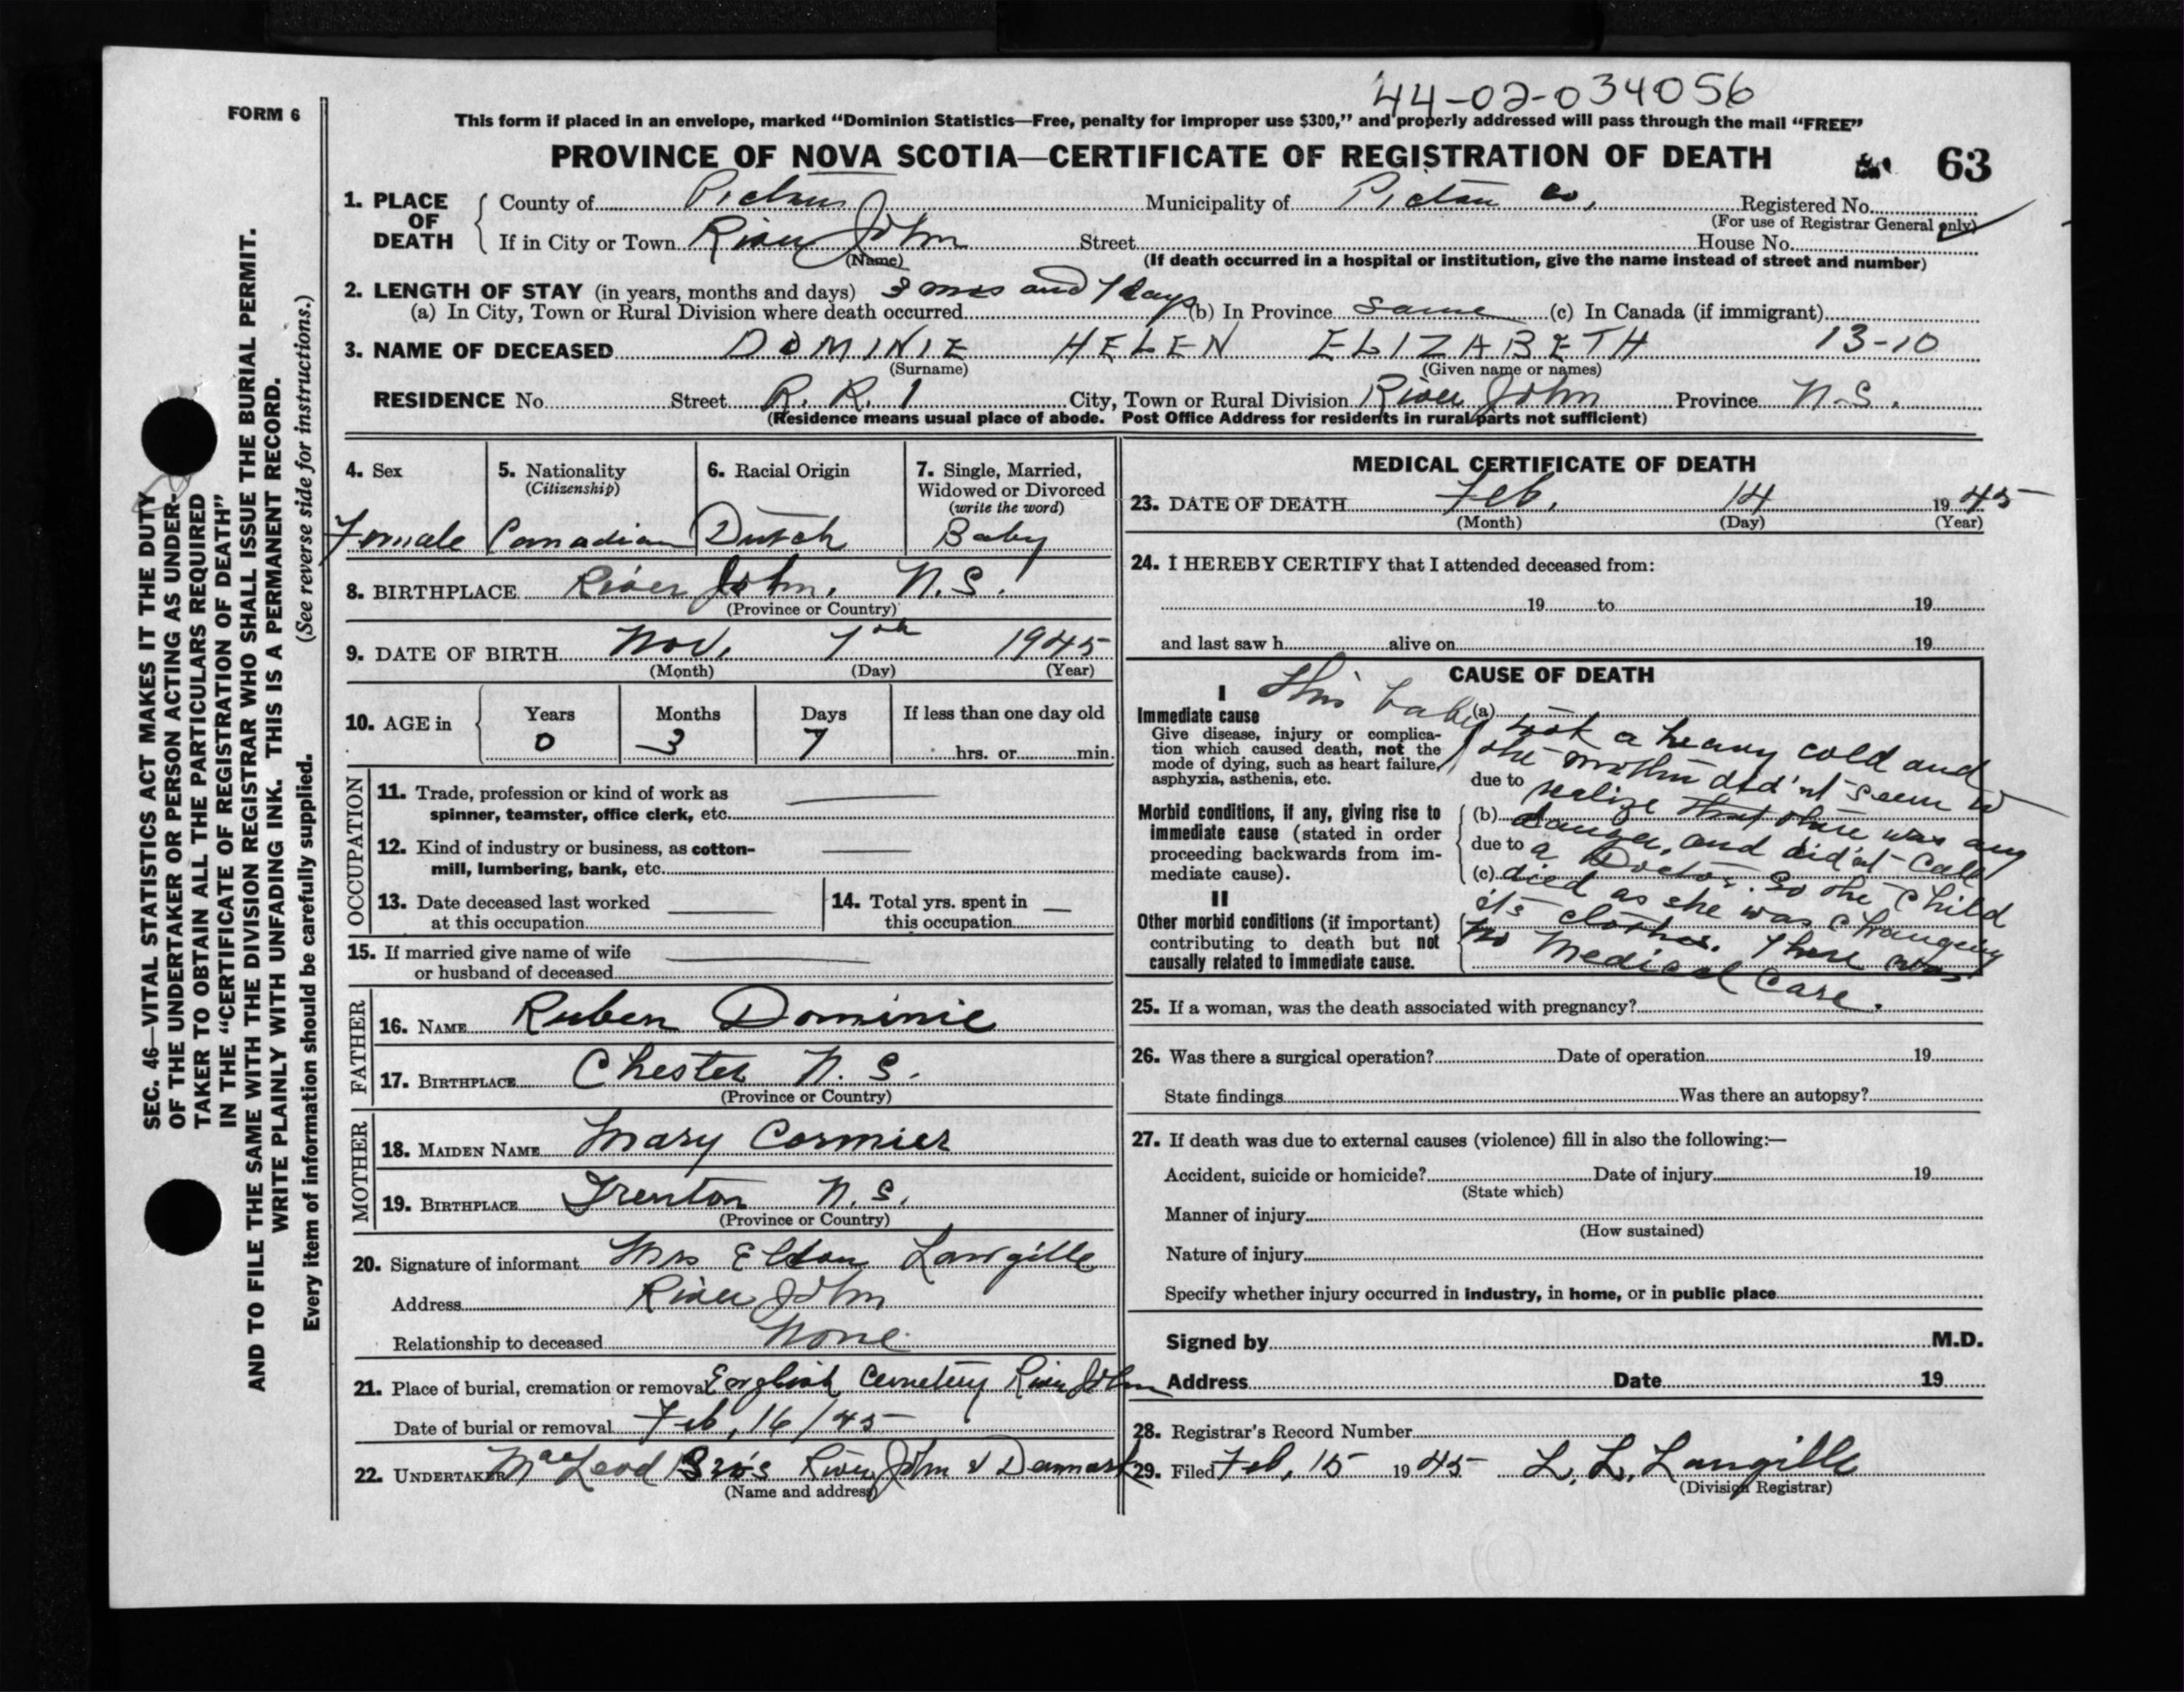 44-02-034056
FORM 6
This form if placed in an envelope, marked "Dominion Statistics—Free, penalty for improper use $300," and properly addressed will pass through the mail "FREE"
PROVINCE OF NOVA SCOTIA—CERTIFICATE OF REGISTRATION OF DEATH 63
1. PLACE OF DEATH County of Pictou Municipality of Pictou Co, Registered No.
(For use of Registrar General only)
If in City or Town River John Street House No.
(Name) (If death occurred in a hospital or institution, give the name instead of street and number)
2. LENGTH OF STAY (in years, months and days) 3 mos and 7 days
(a) In City, Town or Rural Division where death occurred (b) In Province same (c) In Canada (if immigrant)
3. NAME OF DECEASED DOMINIE HELEN ELIZABETH 13-10
(Surname) (Given name or names)
RESIDENCE No. Street R. R. 1 City, Town or Rural Division River John Province N.S.
(Residence means usual place of abode. Post Office Address for residents in rural parts not sufficient)
4. Sex
Female
5. Nationality
(Citizenship)
Canadian
6. Racial Origin
Dutch
7. Single, Married,
Widowed or Divorced
(write the word)
Baby
8. BIRTHPLACE River John, N.S.
(Province or Country)
9. DATE OF BIRTH Nov. 7th 1945
(Month) (Day) (Year)
10. AGE in Years Months Days If less than one day old
0 3 7 hrs. or min.
OCCUPATION
11. Trade, profession or kind of work as
spinner, teamster, office clerk, etc.
12. Kind of industry or business, as cotton-
mill, lumbering, bank, etc.
13. Date deceased last worked
at this occupation
14. Total yrs. spent in
this occupation
15. If married give name of wife
or husband of deceased
FATHER
16. NAME Ruben Dominie
17. BIRTHPLACE Chester N.S.
(Province or Country)
MOTHER
18. MAIDEN NAME Mary Cormier
19. BIRTHPLACE Trenton N.S.
(Province or Country)
20. Signature of informant Mrs Eldon Langille
Address River John
Relationship to deceased None
21. Place of burial, cremation or removal English Cemetery River John
Date of burial or removal Feb, 16/45
22. UNDERTAKER MacLeod Bro's River John & Denmark
(Name and address)
MEDICAL CERTIFICATE OF DEATH
23. DATE OF DEATH Feb. 14 1945
(Month) (Day) (Year)
24. I HEREBY CERTIFY that I attended deceased from:
19 to 19
and last saw h alive on 19
CAUSE OF DEATH
I
Immediate cause
Give disease, injury or complica-
tion which caused death, not the
mode of dying, such as heart failure,
asphyxia, asthenia, etc.
Morbid conditions, if any, giving rise to
immediate cause (stated in order
proceeding backwards from im-
mediate cause).
II
Other morbid conditions (if important)
contributing to death but not
causally related to immediate cause.
(a)
due to
(b)
due to
(c)
This baby took a heavy cold and
the mother did'nt seem to
realize that there was any
danger, and did'nt call
a Doctor. So the child
died as she was changing
it's clothes. There was
no Medical Care.
25. If a woman, was the death associated with pregnancy?
26. Was there a surgical operation? Date of operation 19
State findings Was there an autopsy?
27. If death was due to external causes (violence) fill in also the following:—
Accident, suicide or homicide? Date of injury 19
(State which)
Manner of injury
(How sustained)
Nature of injury
Specify whether injury occurred in industry, in home, or in public place
Signed by M.D.
Address Date 19
28. Registrar's Record Number
29. Filed Feb, 15 1945 L. L. Langille
(Division Registrar)
SEC. 46—VITAL STATISTICS ACT MAKES IT THE DUTY
OF THE UNDERTAKER OR PERSON ACTING AS UNDER-
TAKER TO OBTAIN ALL THE PARTICULARS REQUIRED
IN THE "CERTIFICATE OF REGISTRATION OF DEATH"
AND TO FILE THE SAME WITH THE DIVISION REGISTRAR WHO SHALL ISSUE THE BURIAL PERMIT.
WRITE PLAINLY WITH UNFADING INK. THIS IS A PERMANENT RECORD.
Every item of information should be carefully supplied. (See reverse side for instructions.)